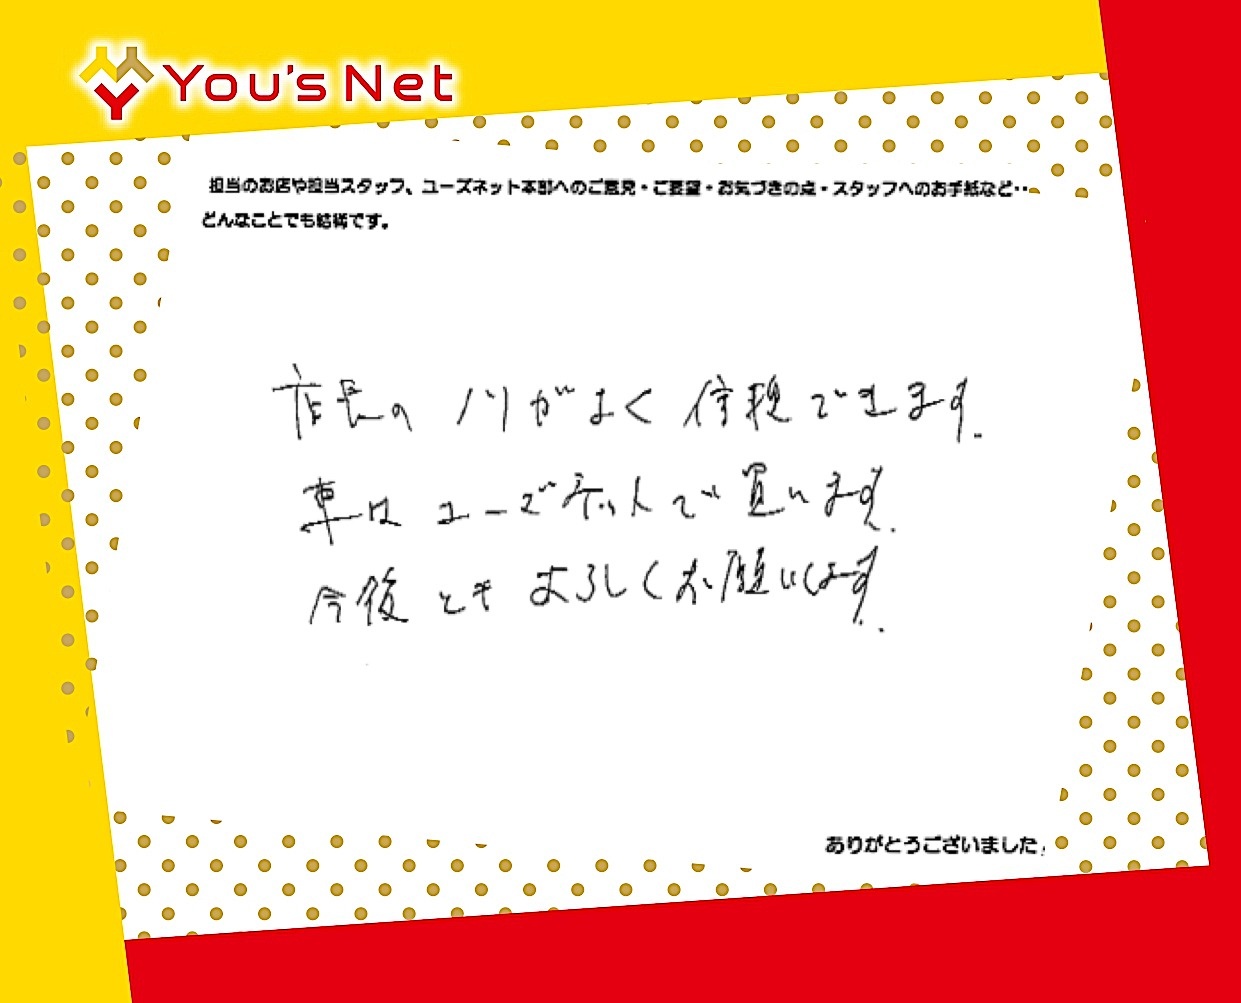 You's Net
担当のお店や担当スタッフ、ユーズネット本部へのご意見・ご要望・お気づきの点・スタッフへのお手紙など‥
どんなことでも結構です。
店長の ノリがよく 信頼できます.
車は ユーズネットで 買います.
今後とも よろしくお願いします.
ありがとうございました。